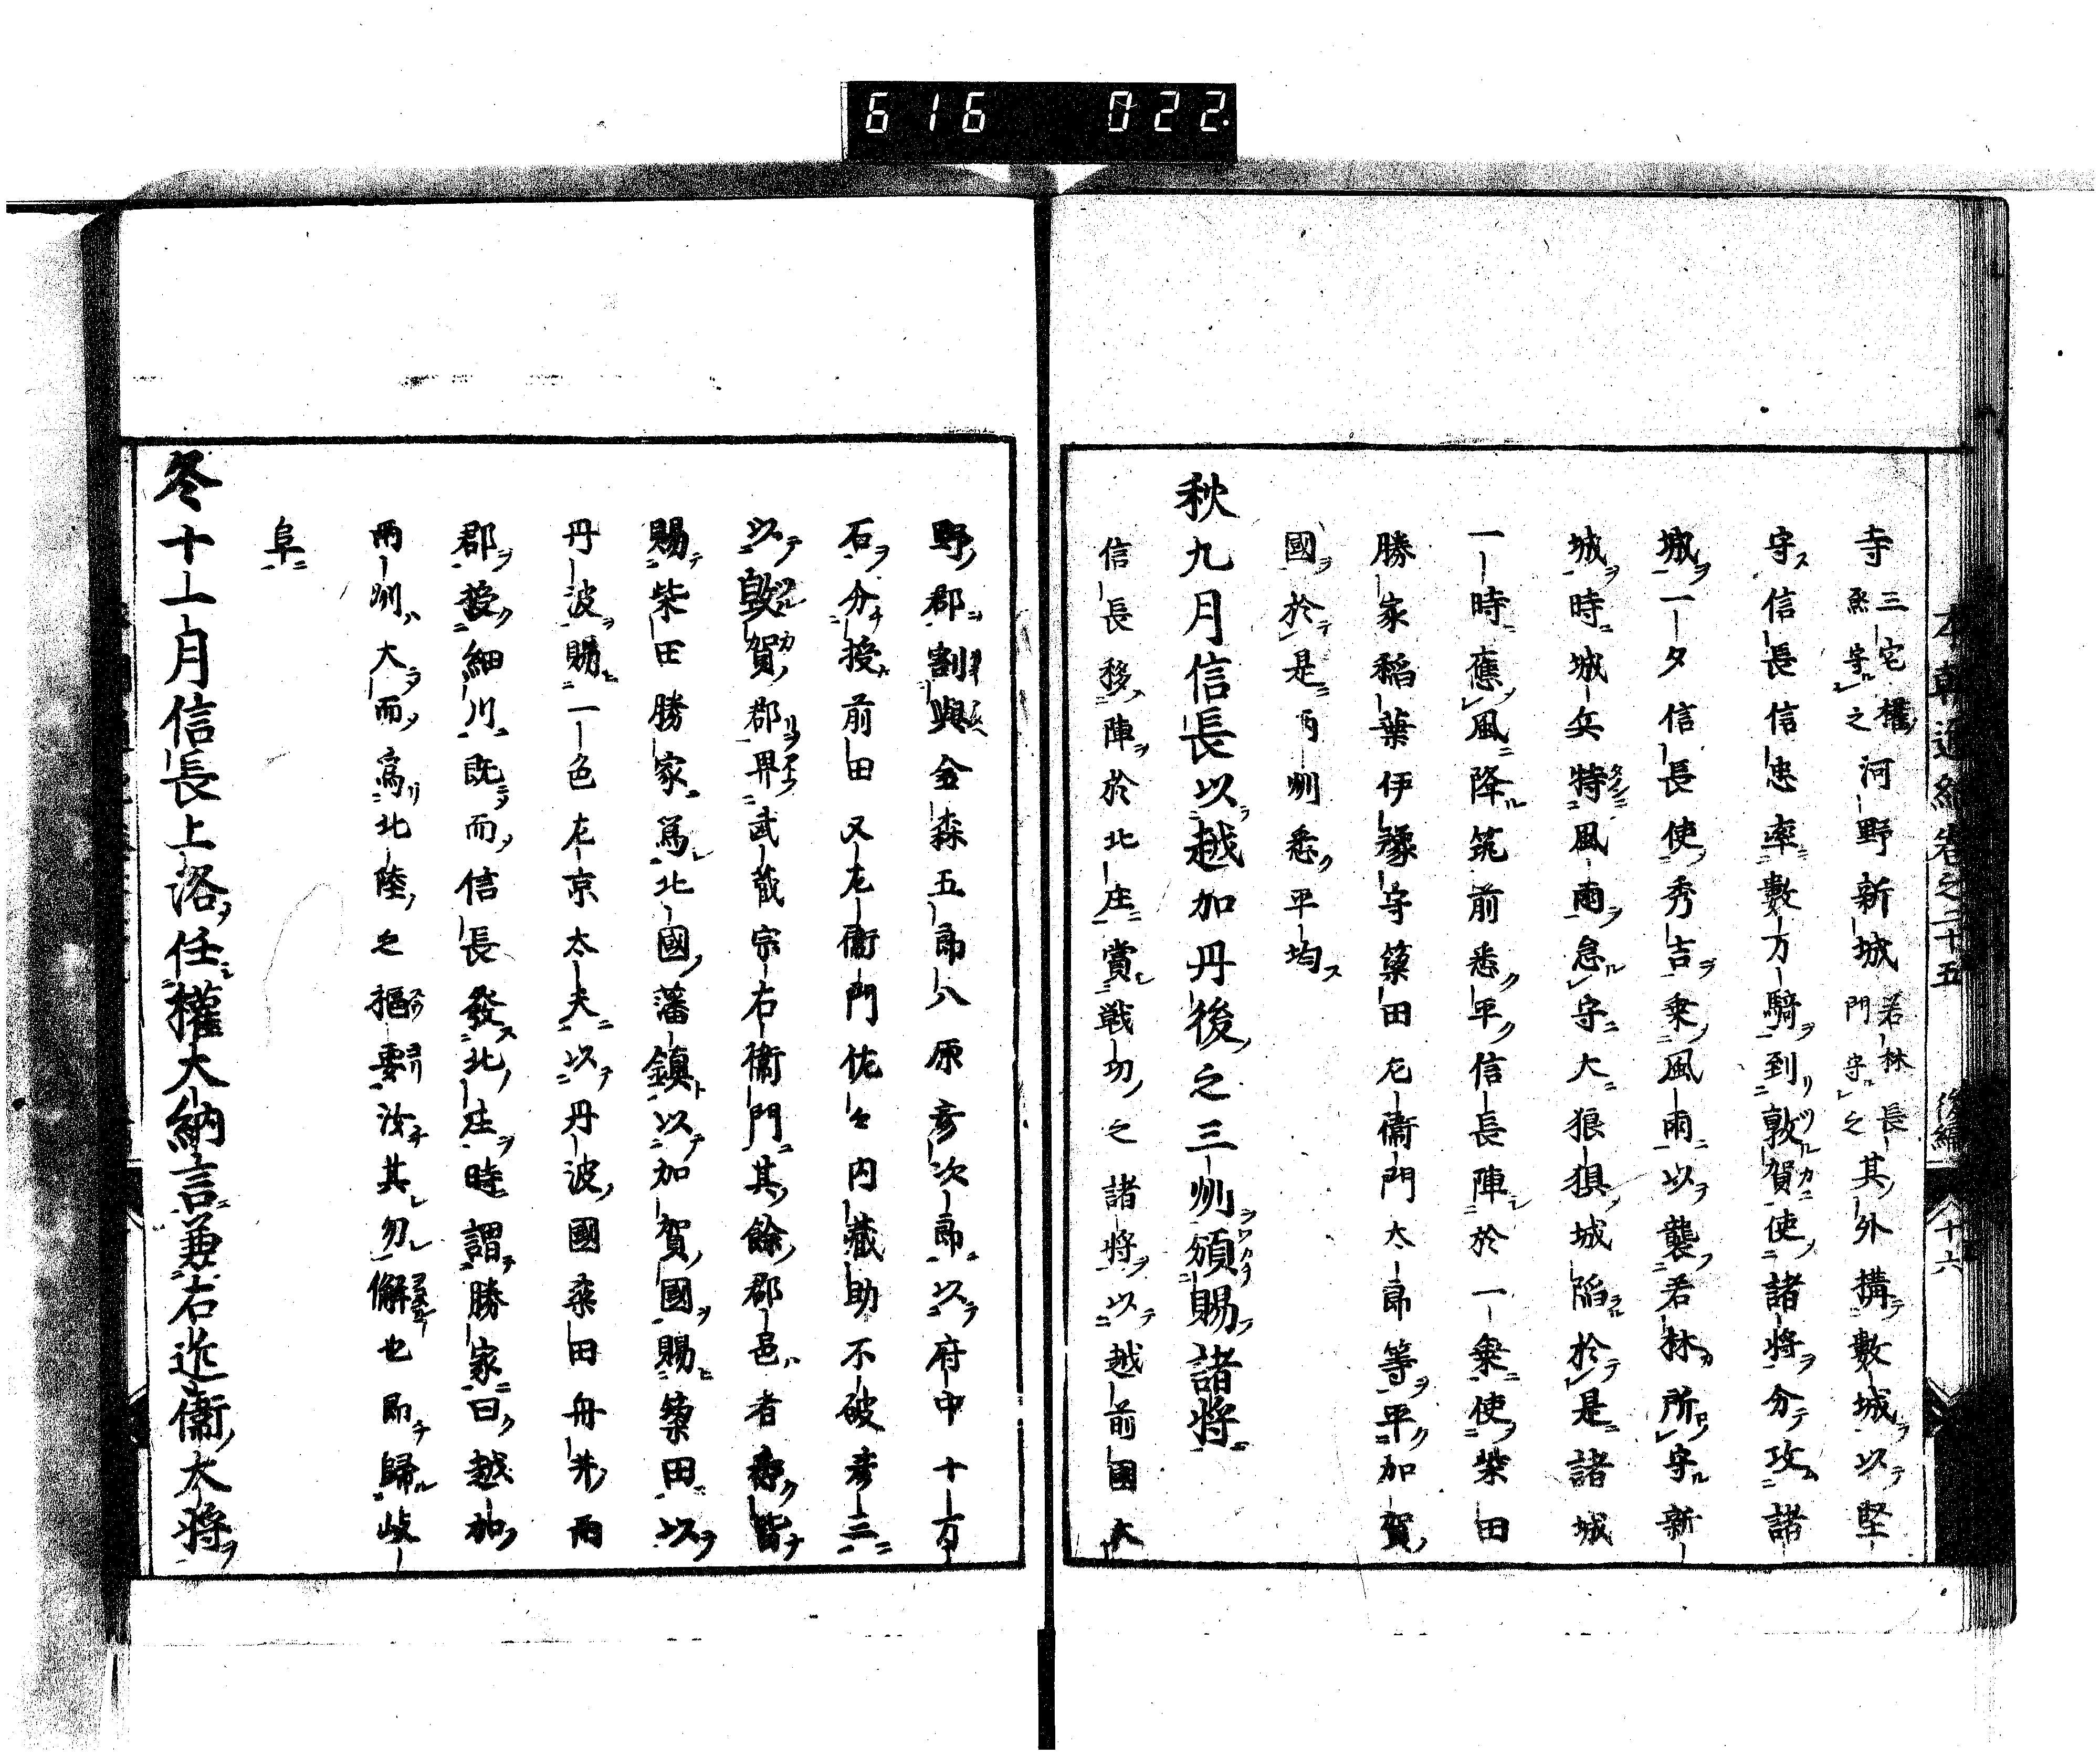 616 022
本朝通紀卷之二十五 後編 十六
寺三宅權兵守之河野新城若林長門守之其外搆數城以堅
守信長信忠率數万騎到敦賀使諸將分攻諸
城一夕信長使秀吉乗風雨以襲若林所守新
城時城兵特風雨怠守大狼狽城陥於是諸城
一時應風降筑前悉平信長陣於一乗使柴田
勝家稲葉伊豫守簗田左衞門太郎等平加賀
國於是两州悉平均
秋九月信長以越加丹後之三州頒賜諸將
信長移陣於北庄賞戦功之諸將以越前國大
野郡割與金森五郎八原彦次郎以府中十万
石分授前田又左衞門佐々内藏助不破彦三
以敦賀郡畀武藏宗右衞門其餘郡邑者悉皆
賜柴田勝家為北國藩鎮以加賀國賜簗田以
丹波賜一色左京太夫以丹波國桒田舟井两
郡授細川既而信長發北庄時謂勝家曰越加
两州大而為北陸之樞要汝其勿懈也即歸岐
阜
冬十一月信長上洛任權大納言兼右近衞太將